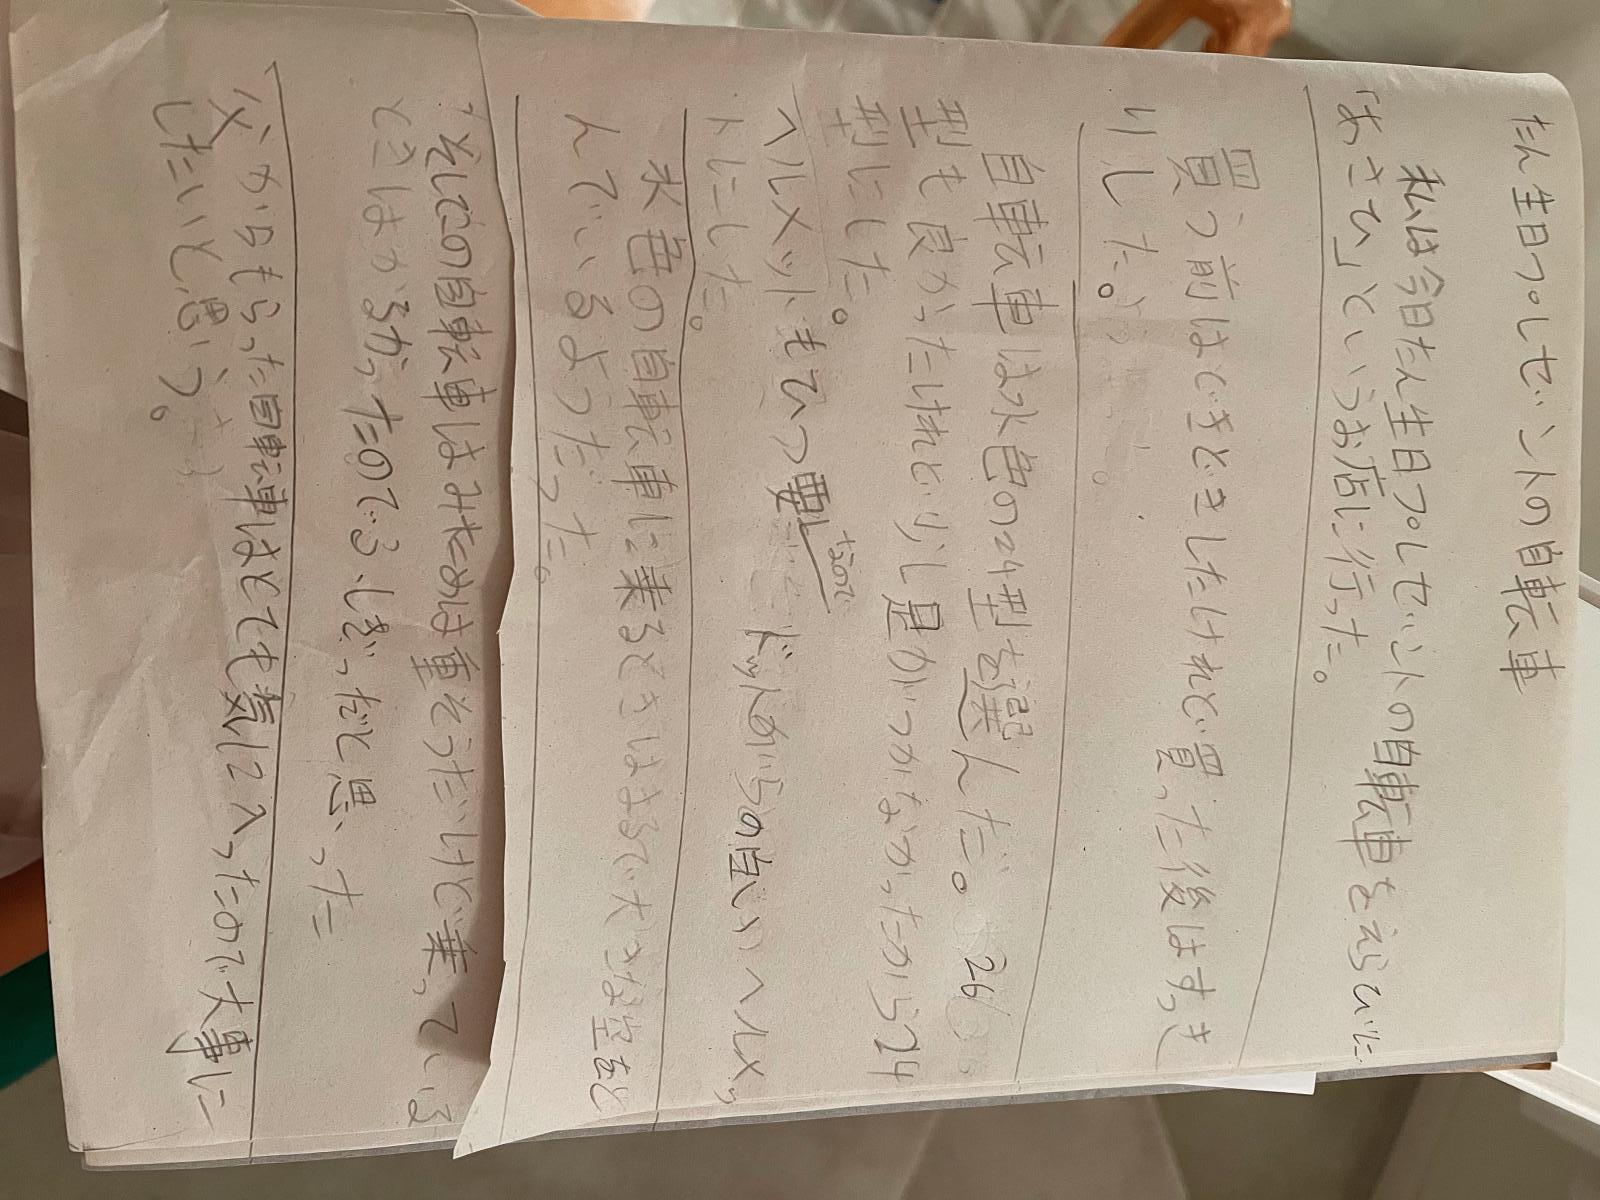 たん生日プレゼントの自転車
私は今日たん生日プレゼントの自転車をえらびに
「あさひ」というお店に行った。
買う前はどきどきしたけれど買った後はすっき
りした。
自転車は水色の24型を選んだ。26
型も良かったけれど少し足がつかなかったから24
型にした。
ヘルメットもひつ要
なので
ドットがらの白いヘルメッ
トにした。
水色の自転車に乗るときはまるで大きな空をと
んでいるようだった。
その自転車はみためは重そうだけど乗っている
とこはかるかったのでふしぎだと思った
父からもらった自転車はとても気に入ったので大事に
したいと思う。